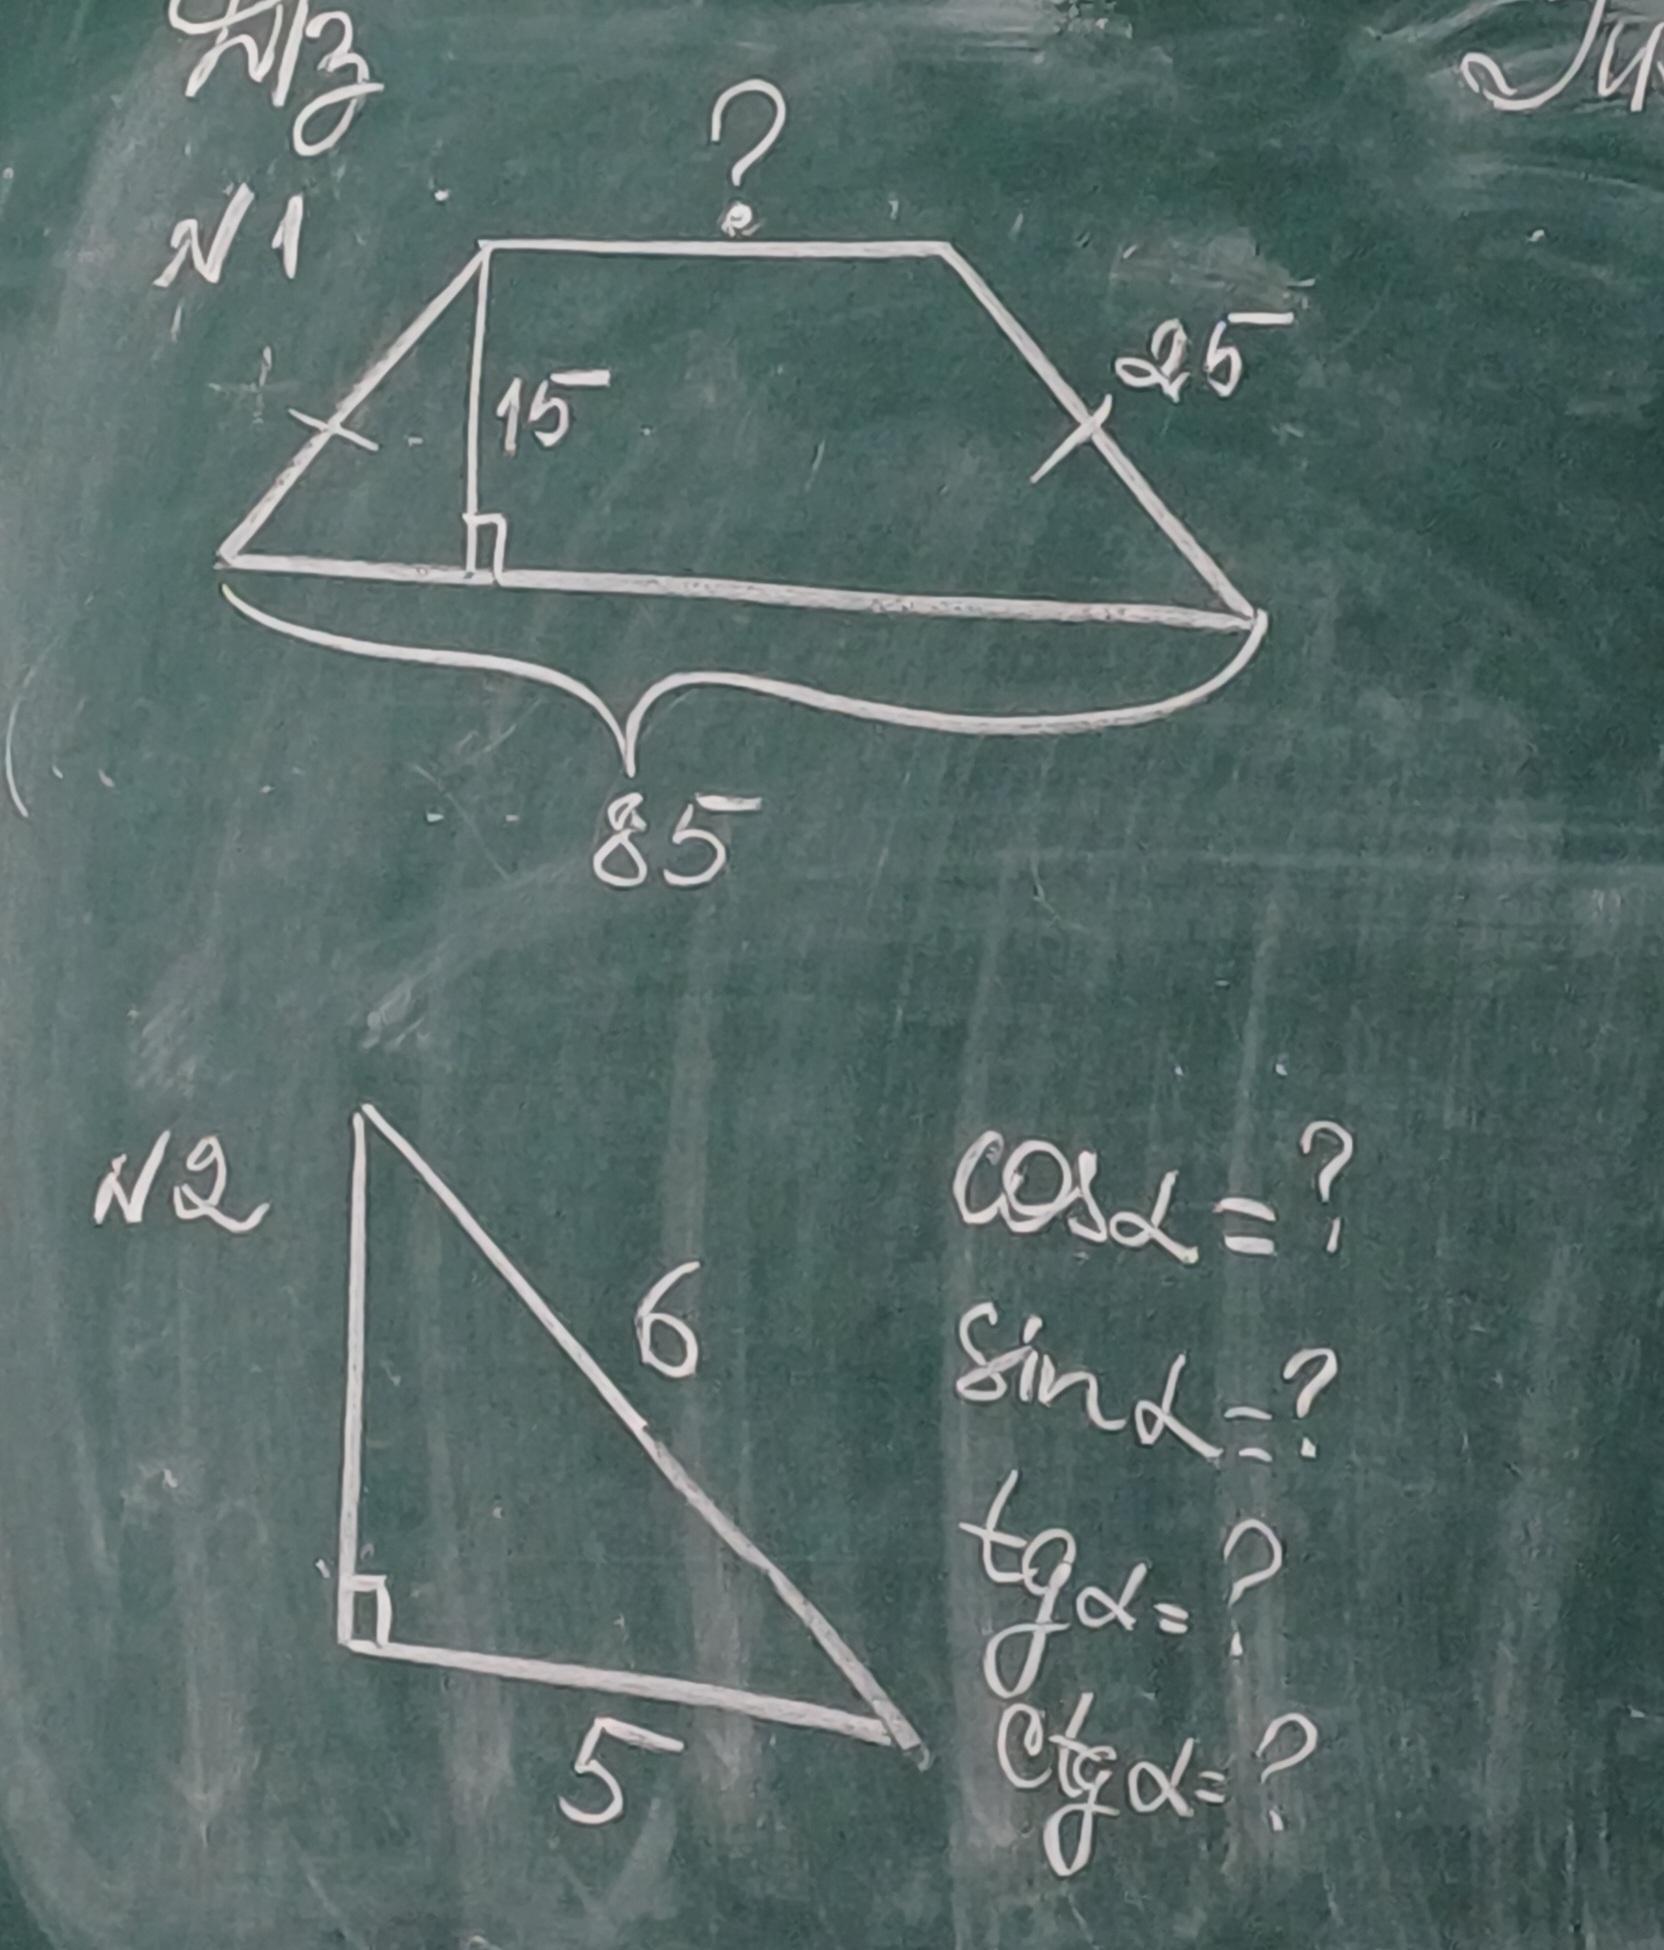 Д/з
N1
?
15
25
85
N2
6
5
cosα=?
sinα=?
tgα=?
ctgα=?